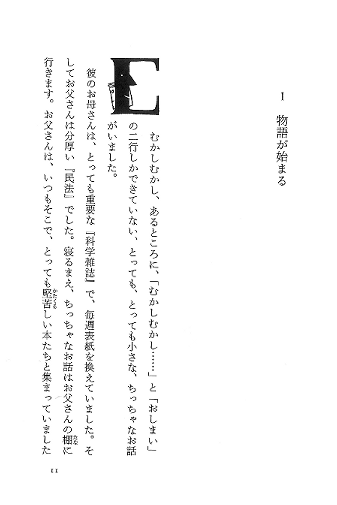 1 物語が始まる
E
むかしむかし、あるところに、「むかしむかし……」と「おしまい」
の二行しかできていない、とっても、とっても小さな、ちっちゃなお話
がいました。
彼のお母さんは、とっても重要な『科学雑誌』で、毎週表紙を換えていました。そ
してお父さんは分厚い『民法』でした。寝るまえ、ちっちゃなお話はお父さんの棚に
行きます。お父さんは、いつもそこで、とっても堅苦しい本たちと集まっていました
11